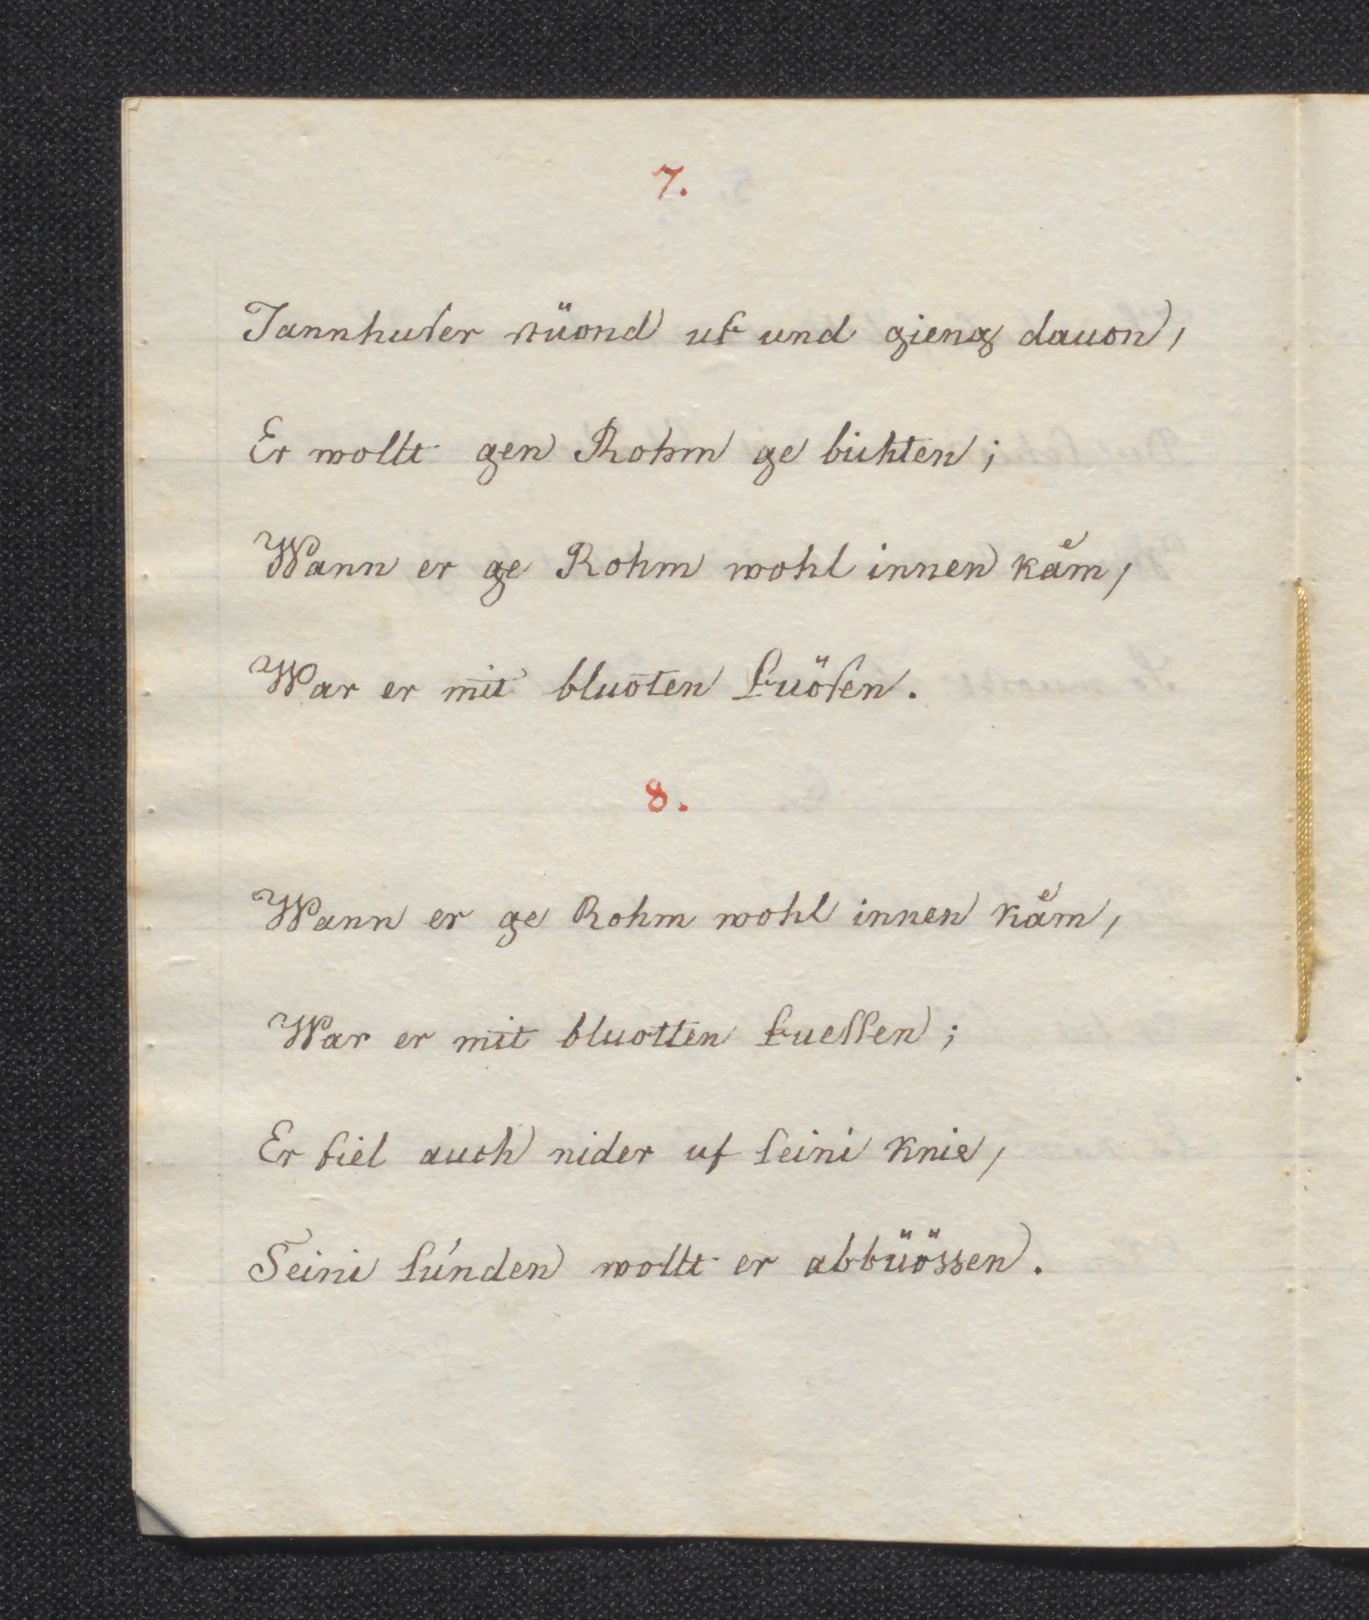 7.
Tannhuser stüond uf und gieng dauon,
Er wollt gen Rohm ge bichten;
Wann er ge Rohm wohl innen kåm,
War er mit bluoten fuösen.
8.
Wann er ge Rohm wohl innen kåm,
War er mit bluotten fuessen;
Er fiel auch nider uf seini knie,
Seini súnden wollt er abbüössen.